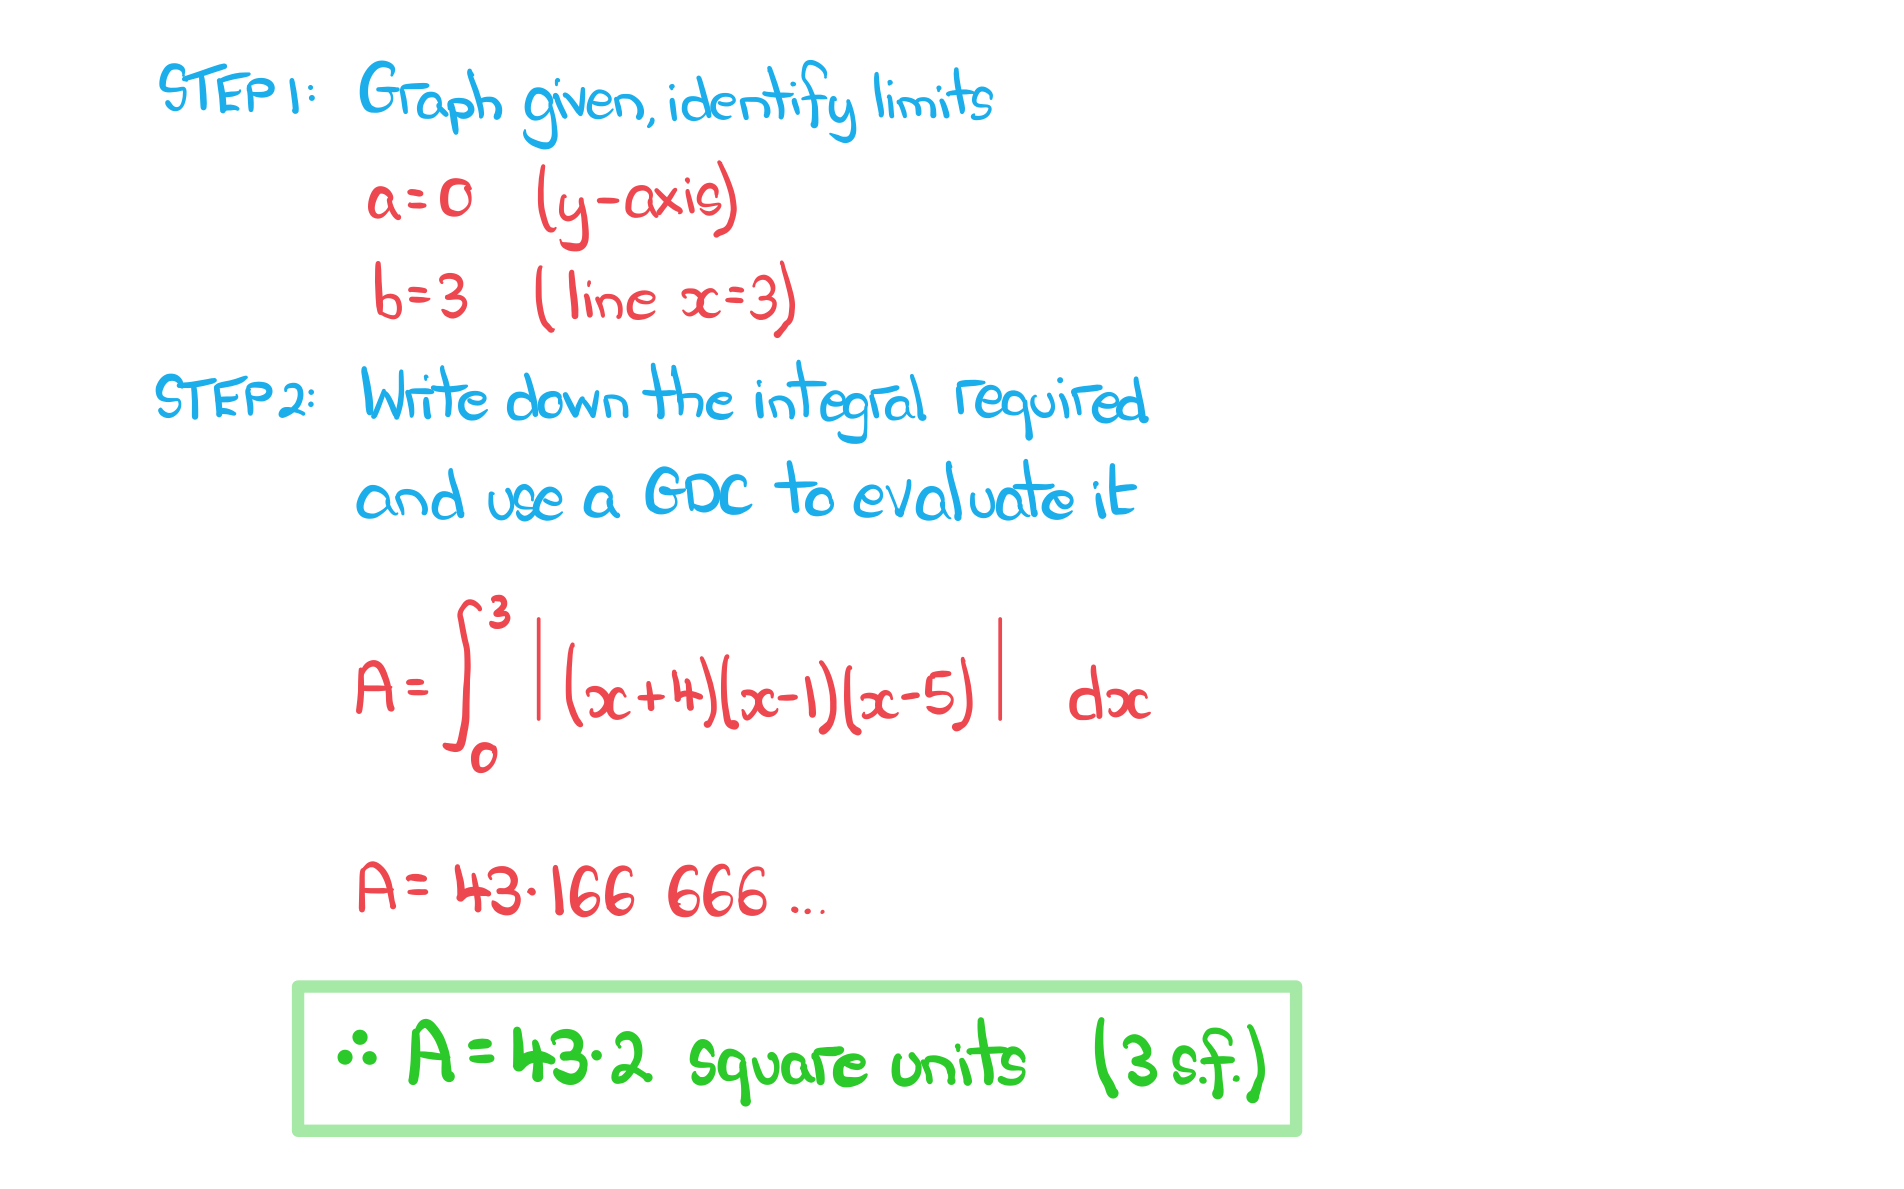 STEP 1: Graph given, identify limits
a=0 (y-axis)
b=3 (line x=3)
STEP 2: Write down the integral required
and use a GDC to evaluate it
A = ∫₀³ |(x+4)(x-1)(x-5)| dx
A = 43·166 666 ...
∴ A = 43·2 square units (3 s.f.)